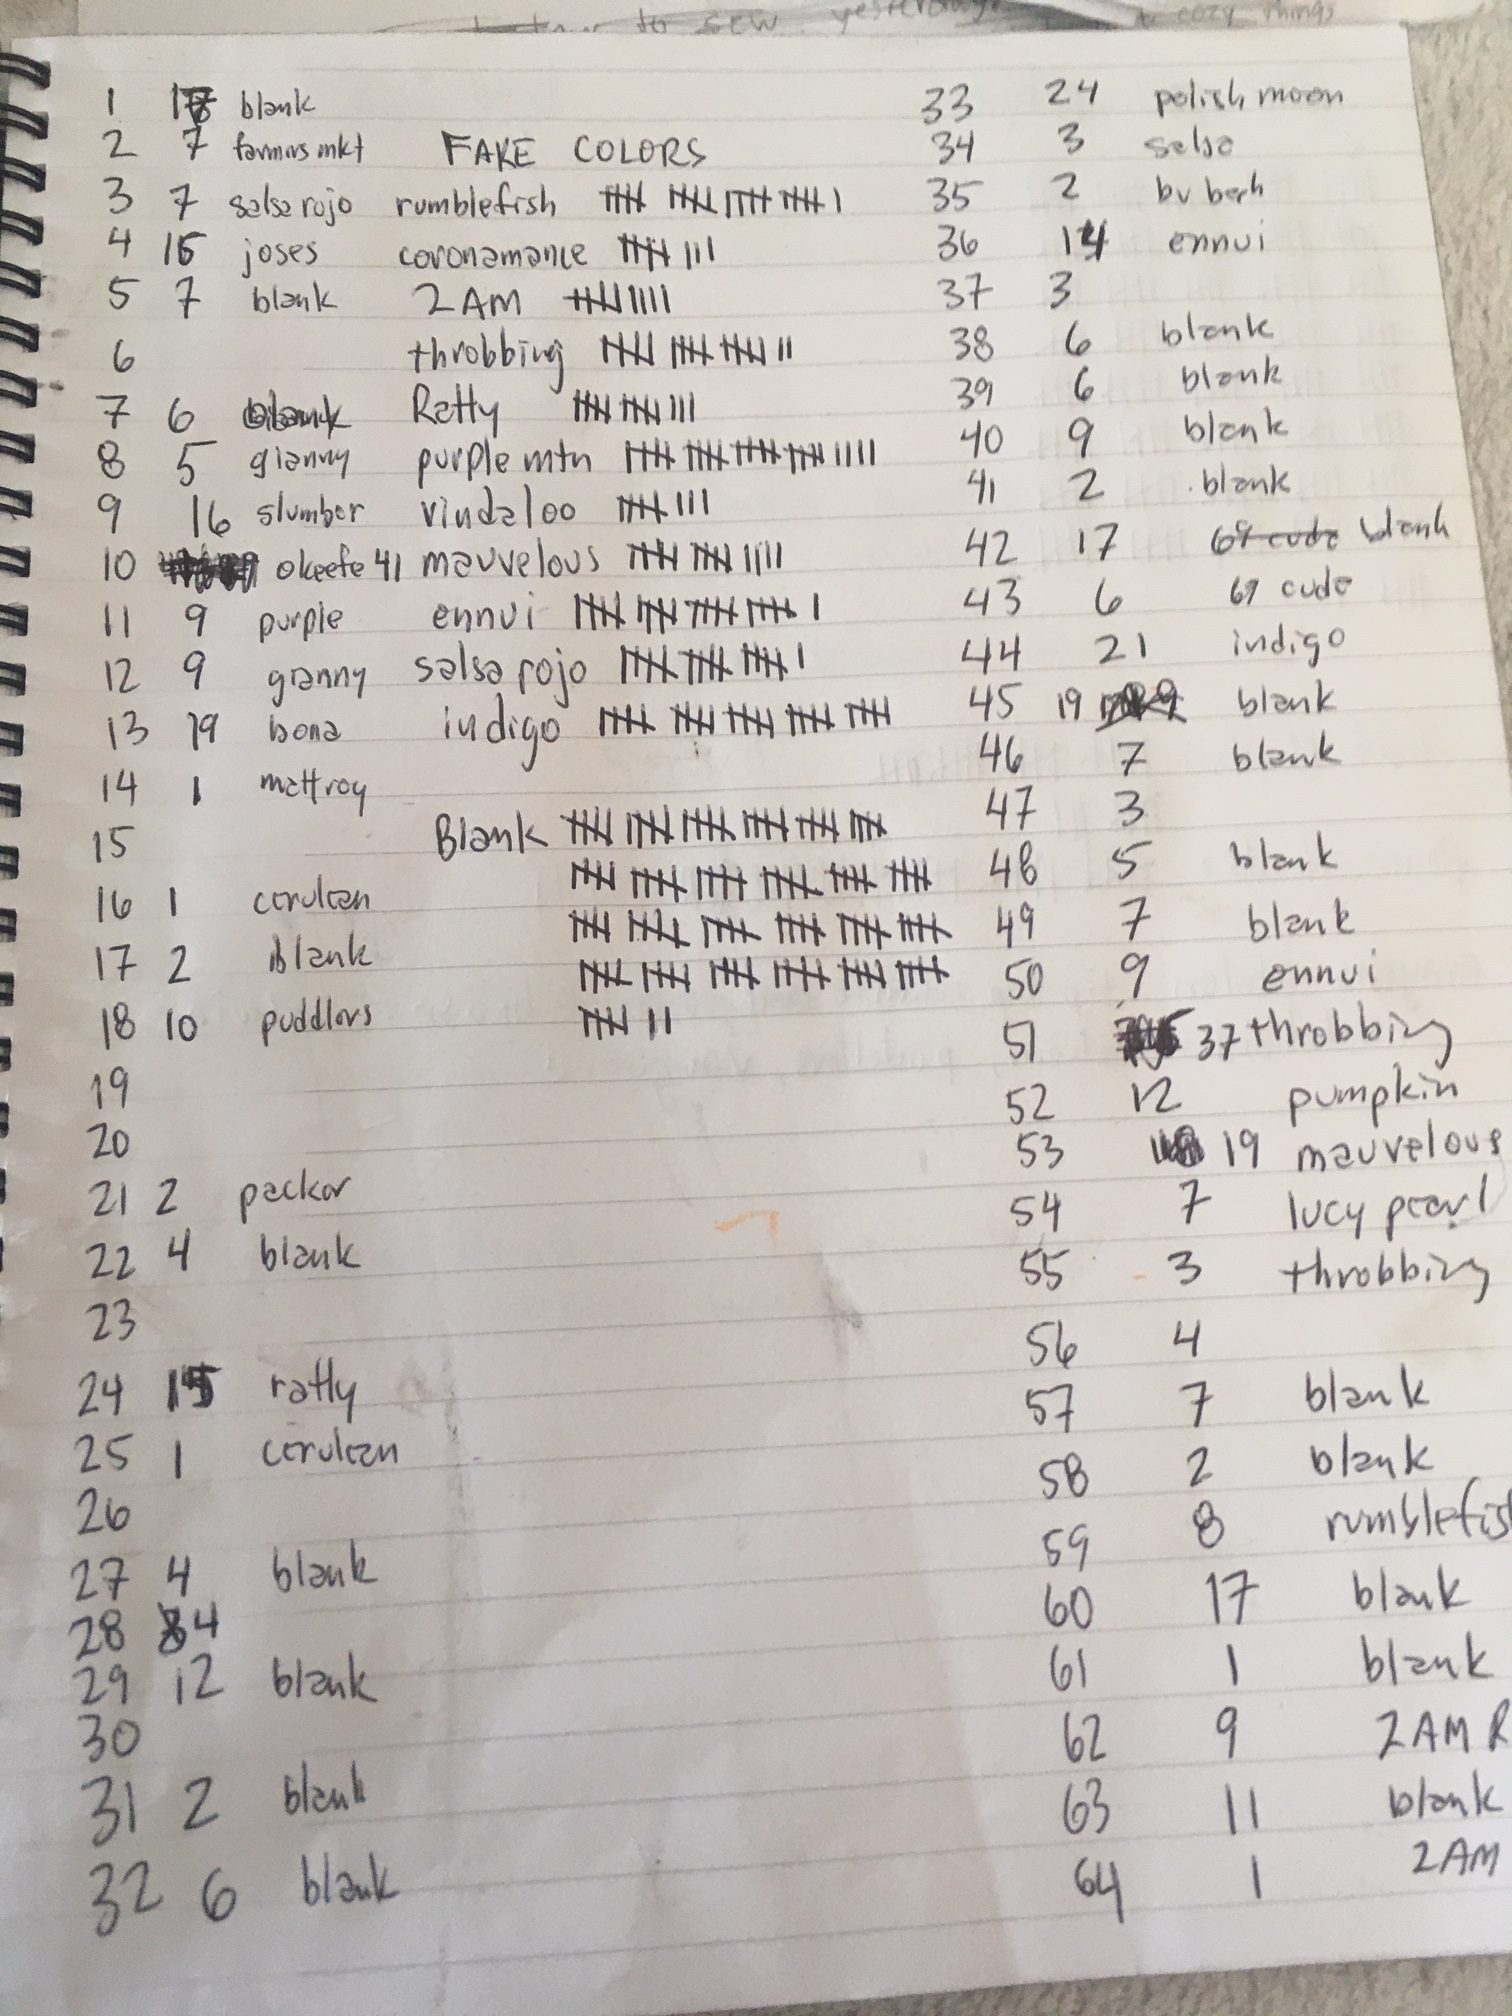 to sew yesterday
cozy things
1 blank
2 7 farmers mkt
3 7 salsa rojo
4 15 joses
5 7 blank
6
7 6 blank
8 5 gianny
9 16 slumber
10 okeefe 41
11 9 purple
12 9 granny
13 19 bona
14 1 mattroy
15
16 1 cerulean
17 2 blank
18 10 puddlers
19
20
21 2 packer
22 4 blank
23
24 15 ratty
25 1 cerulean
26
27 4 blank
28 4
29 12 blank
30
31 2 blank
32 6 blank
FAKE COLORS
rumblefish
coronamance
2 AM
throbbing
Ratty
purple mtn
vindaloo
mauvelous
ennui
salsa rojo
indigo
Blank
33 24 polish moon
34 3 salsa
35 2 bv beh
36 14 ennui
37 3
38 6 blank
39 6 blank
40 9 blank
41 2 blank
42 17 69 cude blank
43 6 69 cude
44 21 indigo
45 19 blank
46 7 blank
47 3
48 5 blank
49 7 blank
50 9 ennui
51 37 throbbing
52 12 pumpkin
53 19 mauvelous
54 7 lucy pearl
55 3 throbbing
56 4
57 7 blank
58 2 blank
59 8 rumblefis
60 17 blank
61 1 blank
62 9 2 AM R
63 11 blank
64 1 2 AM